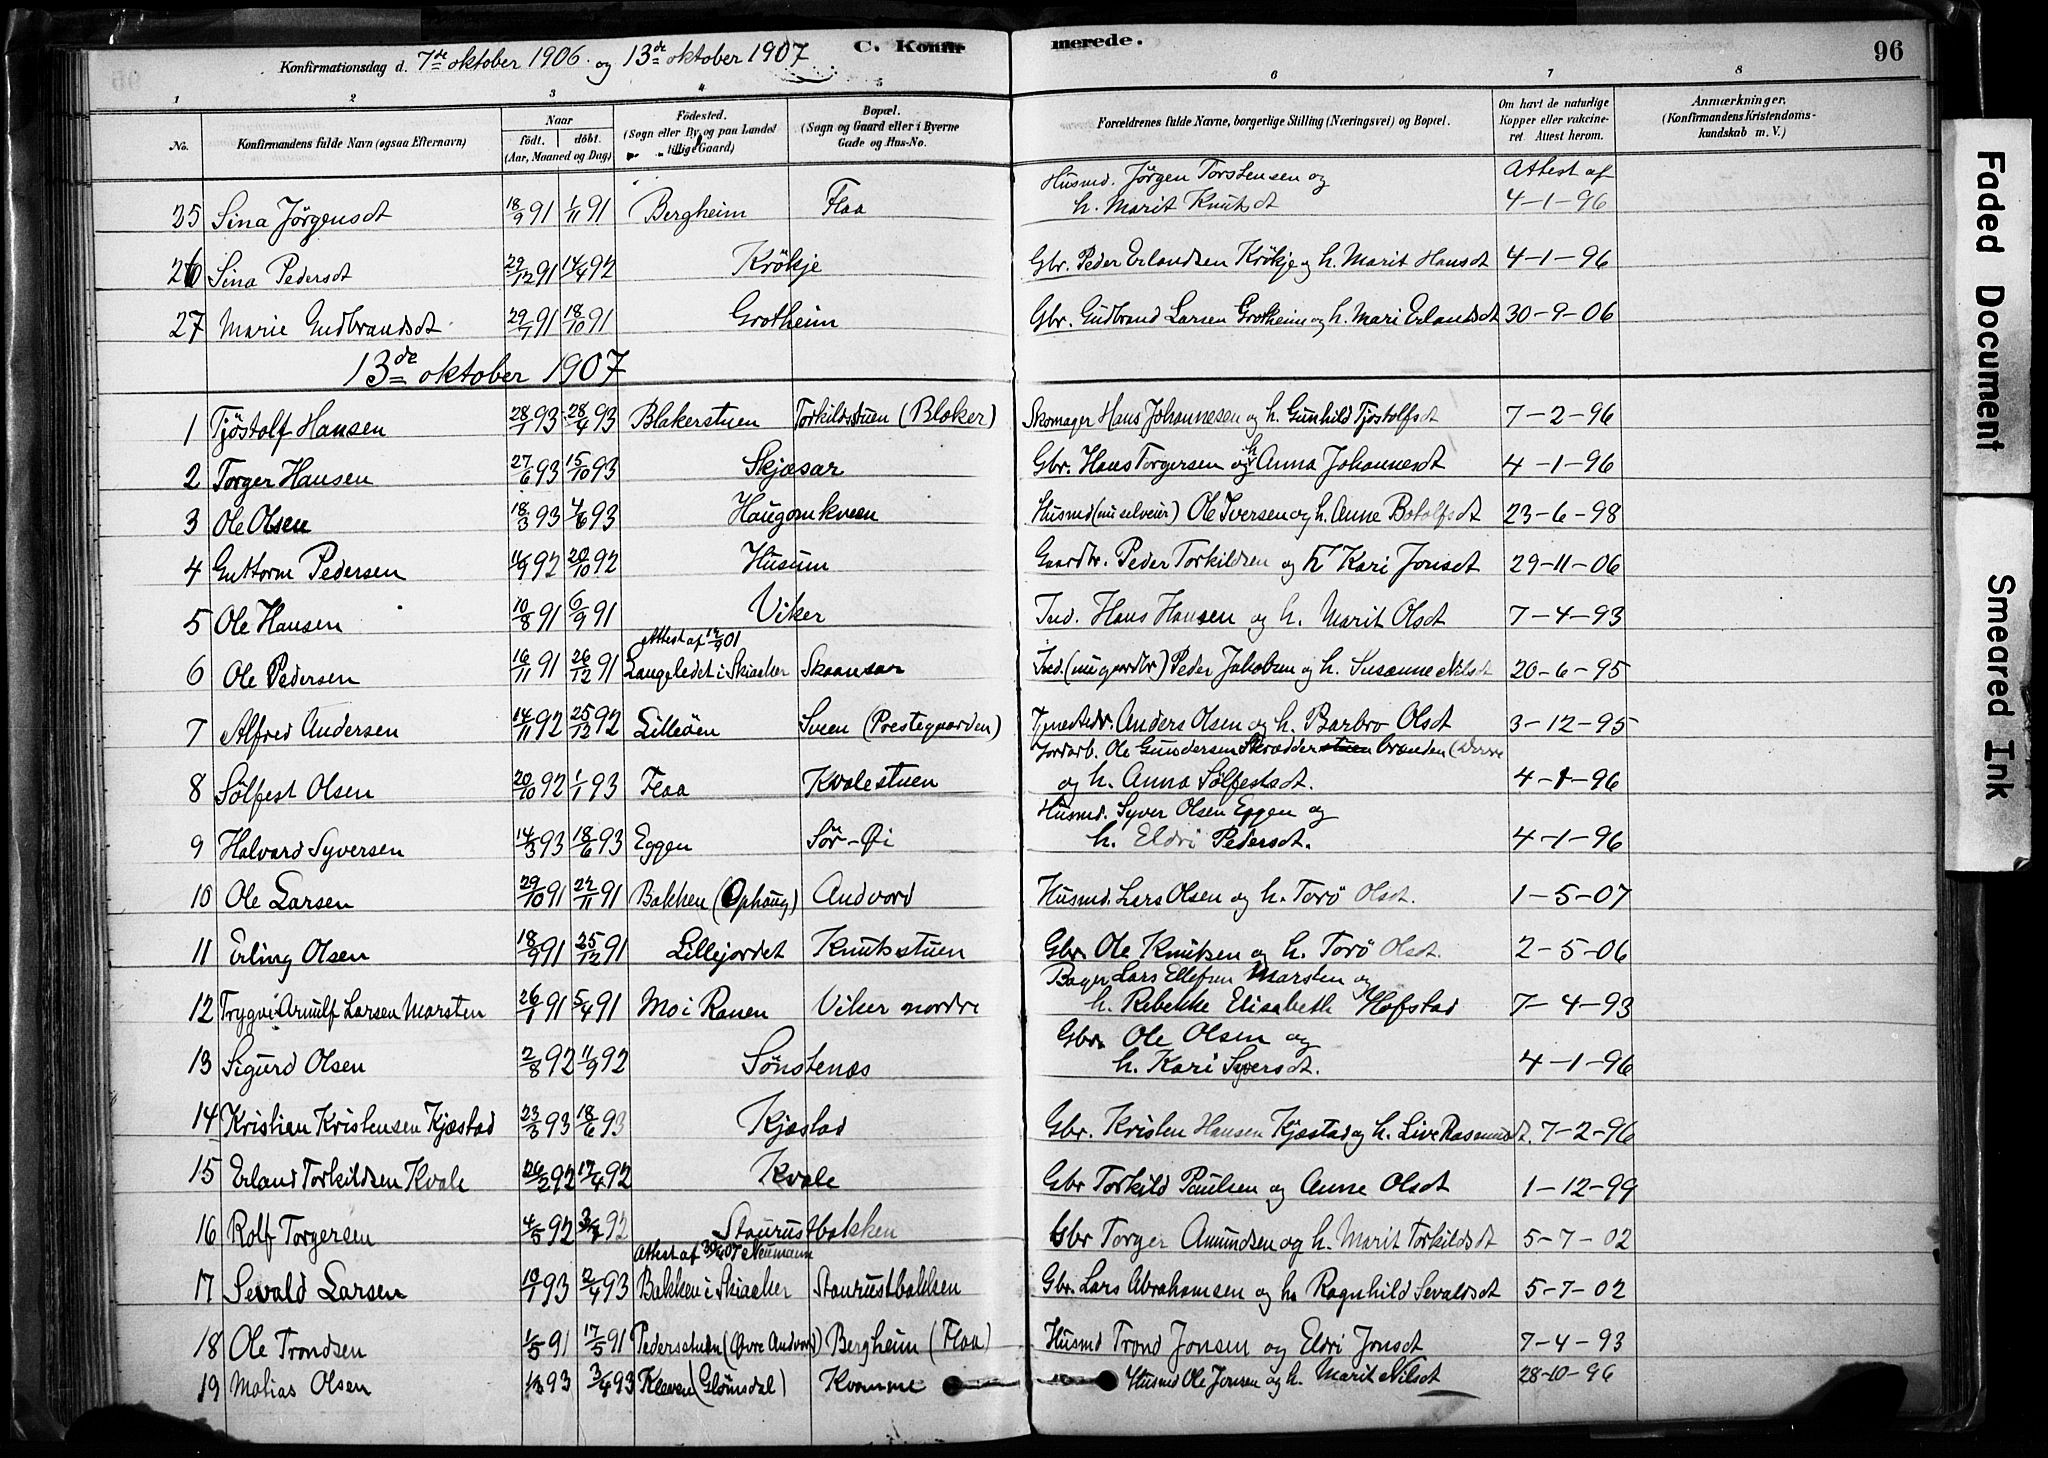 Konfirmationsdag d. 7de oktober 1906. og 13de oktober 1907
C. Konfirmerede.
96
1 2 3 4 5 6 7 8
No. Konfirmandens fulde Navn (ogsaa Efternavn) Naar födt. döbt. (Aar, Maaned og Dag) Födested. (Sogn eller By, og paa Landet tillige Gaard) Bopæl. (Sogn og Gaard eller i Byerne Gade og Hus-No. Forældrenes fulde Navne, borgerlige Stilling (Næringsvei) og Bopæl. Om havt de naturlige Kopper eller vakcineret. Attest herom. Anmærkninger. (Konfirmandens Kristendomskundskab m. V.)
25 Sina Jörgensdt 18/9 91 1/11 91 Bergheim Flaa Husmd. Jörgen Torstensen og h. Marit Knutsdt Attest af 4-1-96
26 Sina Pedersdt 29/12 91 14/4 92 Krökje Gbr. Peder Erlandsen Krökje og h. Marit Hansdt 4-1-96
27 Marie Gudbrandsdt 29/7 91 18/10 91 Grotheim Gbr. Gudbrand Larsen Grotheim og h. Mari Erlandsdt 30-9-06
13de oktober 1907
1 Tjöstolf Hansen 28/1 93 28/4 93 Blakerstuen Torkildsstuen (Blaker) Skomager Hans Johannesen og h. Gunhild Tjöstolfsdt 7-2-96
2 Torger Hansen 27/6 93 15/10 93 Skjæsar Gbr. Hans Torgersen og h. Anna Johannesdt 4-1-96
3 Ole Olsen 18/3 93 4/6 93 Haugomkveen Husmd (nu selveier) Ole Iversen og h. Anne Botolfsdt 23-6-98
4 Guttorm Pedersen 11/9 92 20/10 92 Husum Gaardbr. Peder Torkildsen og h. Kari Jonsdt 29-11-06
5 Ole Hansen 10/8 91 6/9 91 Viker Ind. Hans Hansen og h. Marit Olsdt 7-4-93
6 Ole Pedersen 16/11 91 26/12 91 Langeledet i Skiaker Skaansar Ind. (nu gaardbr) Peder Jakobsen og h. Susanne Nilsdt 20-6-95
7 Alfred Andersen 14/11 92 25/12 92 Lilleöen Sveen (Prestegaarden) Tjenestedr. Anders Olsen og h. Barbro Olsdt 3-12-95
8 Sölfest Olsen 20/10 92 1/1 93 Flaa Kvalestuen Jordarb. Ole Gundersen Skrædderstuen og h. Anna Sölfestsdt. 4-1-96
9 Halvard Syversen 14/3 93 18/6 93 Eggen Sör-Öi Husmd. Syver Olsen Eggen og h. Eldri Pedersdt. 4-1-96
10 Ole Larsen 29/10 91 22/11 91 Bakken (Ophaug) Andvord Husmd. Lars Olsen og h. Torö Olsdt. 1-5-07
11 Erling Olsen 18/9 91 25/12 91 Lillejordet Knutsstuen Gbr. Ole Knutsen og h. Torö Olsdt. 2-5-06
12 Trygvi Arnulf Larsen Marsten 26/1 91 5/4 91 Mo i Ranen Viker nordre Bager Lars Ellefsen Marsten og h. Rebekke Elisabeth Hofstad 7-4-93
13 Sigurd Olsen 2/8 92 11/9 92 Sönstenæs Gbr. Ole Olsen og h. Kari Syversdt. 4-1-96
14 Kristian Kristensen Kjæstad 23/3 93 18/6 93 Kjæstad Gbr. Kristen Hansen Kjæstad og h. Live Rasmusdt. 7-2-96
15 Erland Torkildsen Kvale 26/2 92 17/4 92 Kvale Gbr Torkild Paulsen og Anne Olsdt 1-12-99
16 Rolf Torgersen 4/5 92 3/7 92 Staurustbakken Gbr Torger Amundsen og h. Marit Torkildsdt 5-7-02
17 Sevald Larsen 10/1 93 2/4 93 Bakken i Skiaker Staurustbakken Gbr. Lars Abrahamsen og h. Ragnhild Sevaldsdt 5-7-02
18 Ole Trondsen 1/5 91 17/5 91 Pedersstuen (Övre Andvord) Bergheim (Flaa) Husmd Trond Jonsen og Eldri Jonsdt 7-4-93
19 Matias Olsen 93 3/4 93 Kleven (Glömsdal) Kvamme Husmd Ole Jonsen og h. Marit Nilsdt 28-10-96
Faded Document
Smeared Ink